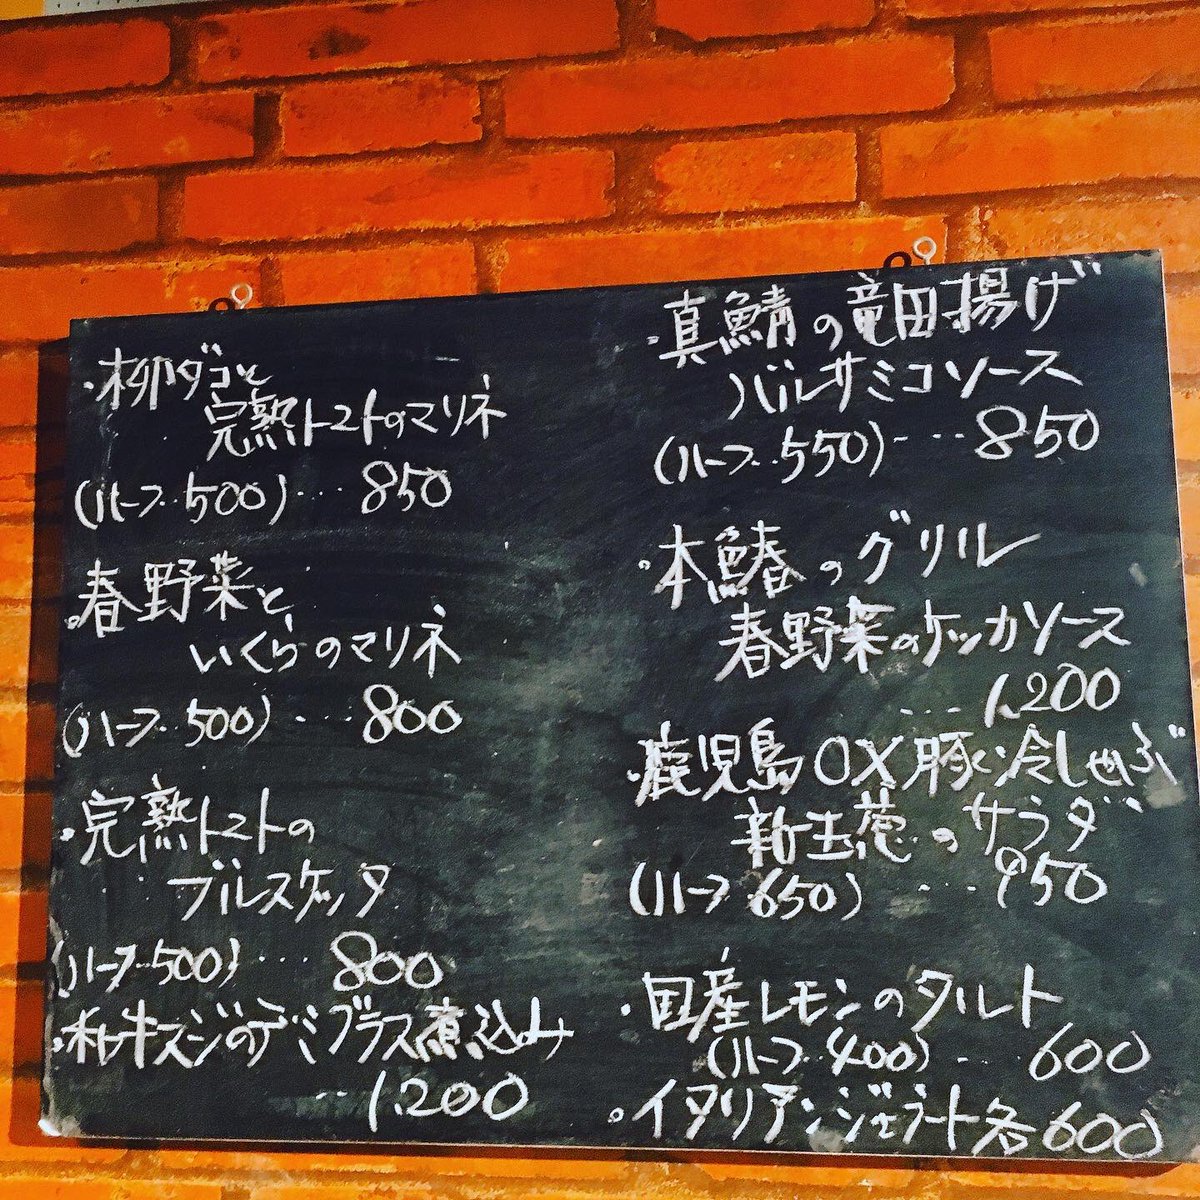 ・柳ダコと
完熟トマトのマリネ
(ハーフ‥500)‥‥850
。春野菜と
いくらのマリネ
(ハーフ‥500)‥‥800
・完熟トマトの
ブルスケッタ
(ハーフ‥500)‥‥800
・和牛スジのデミグラス煮込み
‥1.200
・真鯖の竜田揚げ
バルサミコソース
(ハーフ‥550)‥‥850
。本鰆のグリル
春野菜のケッカソース
‥‥1.200
・鹿児島OX豚冷しゃぶ
新玉葱のサラダ
(ハーフ‥650)‥‥950
・国産レモンのタルト
(ハーフ‥400)‥‥600
。イタリアンジェラート各600